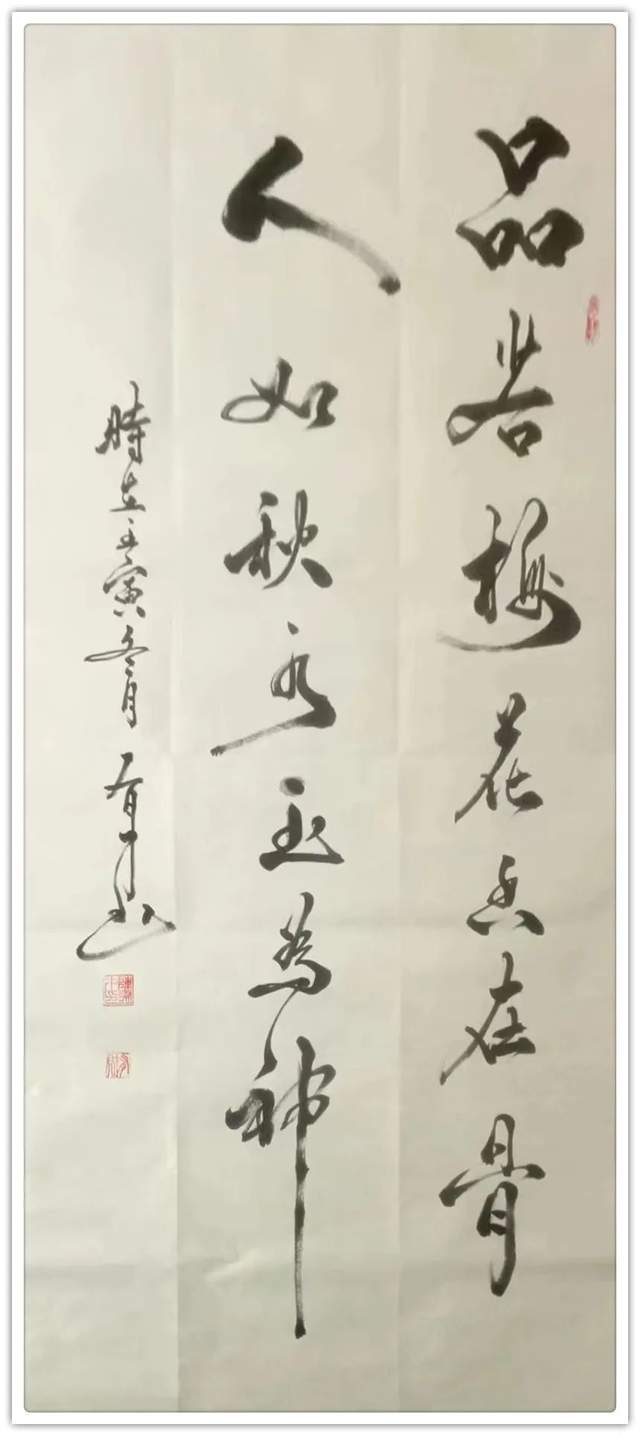 品若梅花香在骨
人如秋水玉為神
時在壬寅冬月